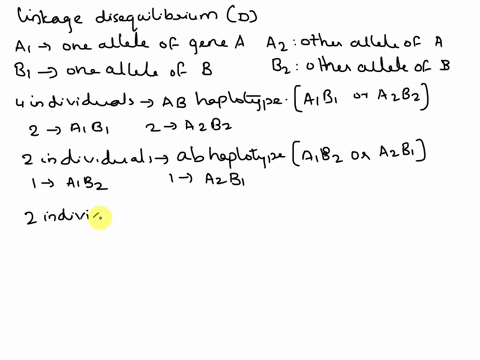 Linkage disequilibrium (D)
A1 → one allele of gene A A2 : other allele of A
B1 → one allele of B B2 : other allele of B
4 individuals → AB haplotype. [A1B1 or A2B2]
2 → A1B1 2 → A2B2
2 individuals → ab haplotype [A1B2 or A2B1]
1 → A1B2 1 → A2B1
2 indivi